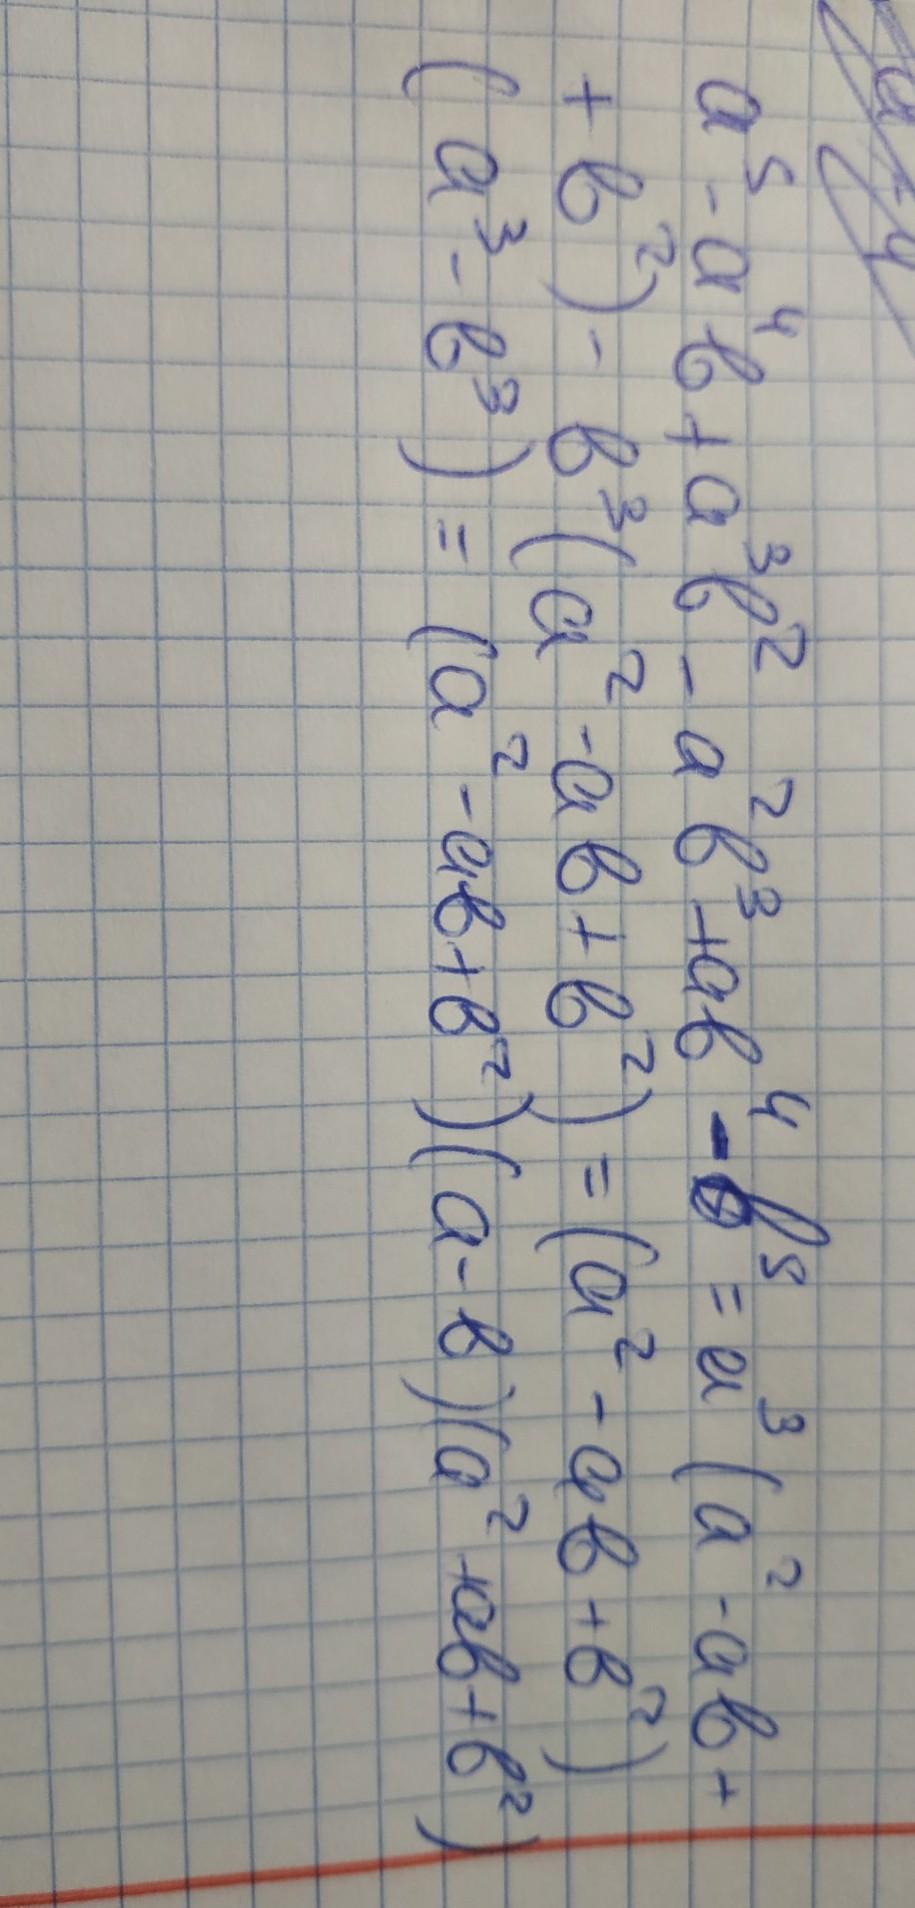 a⁵-a⁴b+a³b²-a²b³+ab⁴-b⁵=a³(a²-ab+
+b²)-b³(a²-ab+b²)=(a²-ab+b²)
(a³-b³)=(a²-ab+b²)(a-b)(a²+ab+b²)